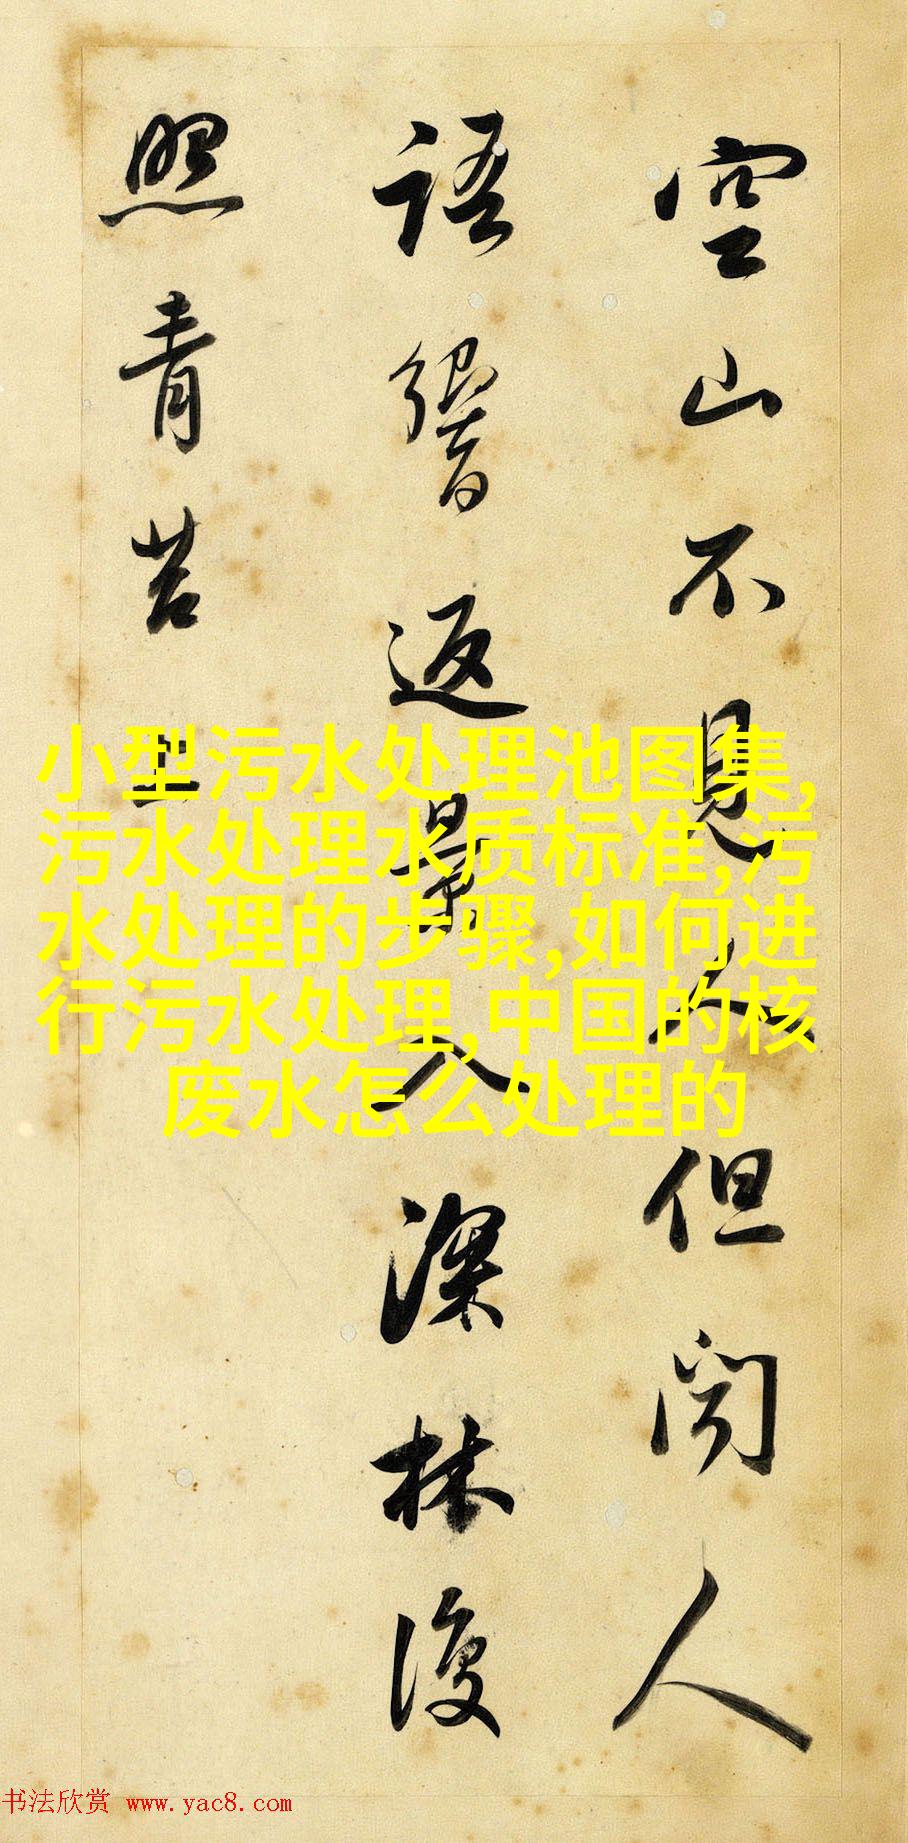 空山不見人但聞人
語響返景入深林復
照青苔上
小型污水处理池图集,
污水处理水质标准,污
水处理的步骤,如何进
行污水处理,中国的核
废水怎么处理的
书法欣赏 www.yac8.com